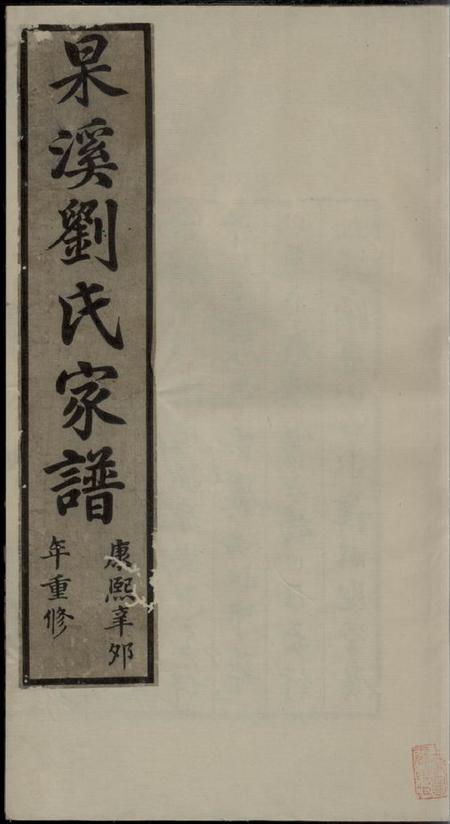 杲溪劉氏家譜
康熙辛夘
年重修